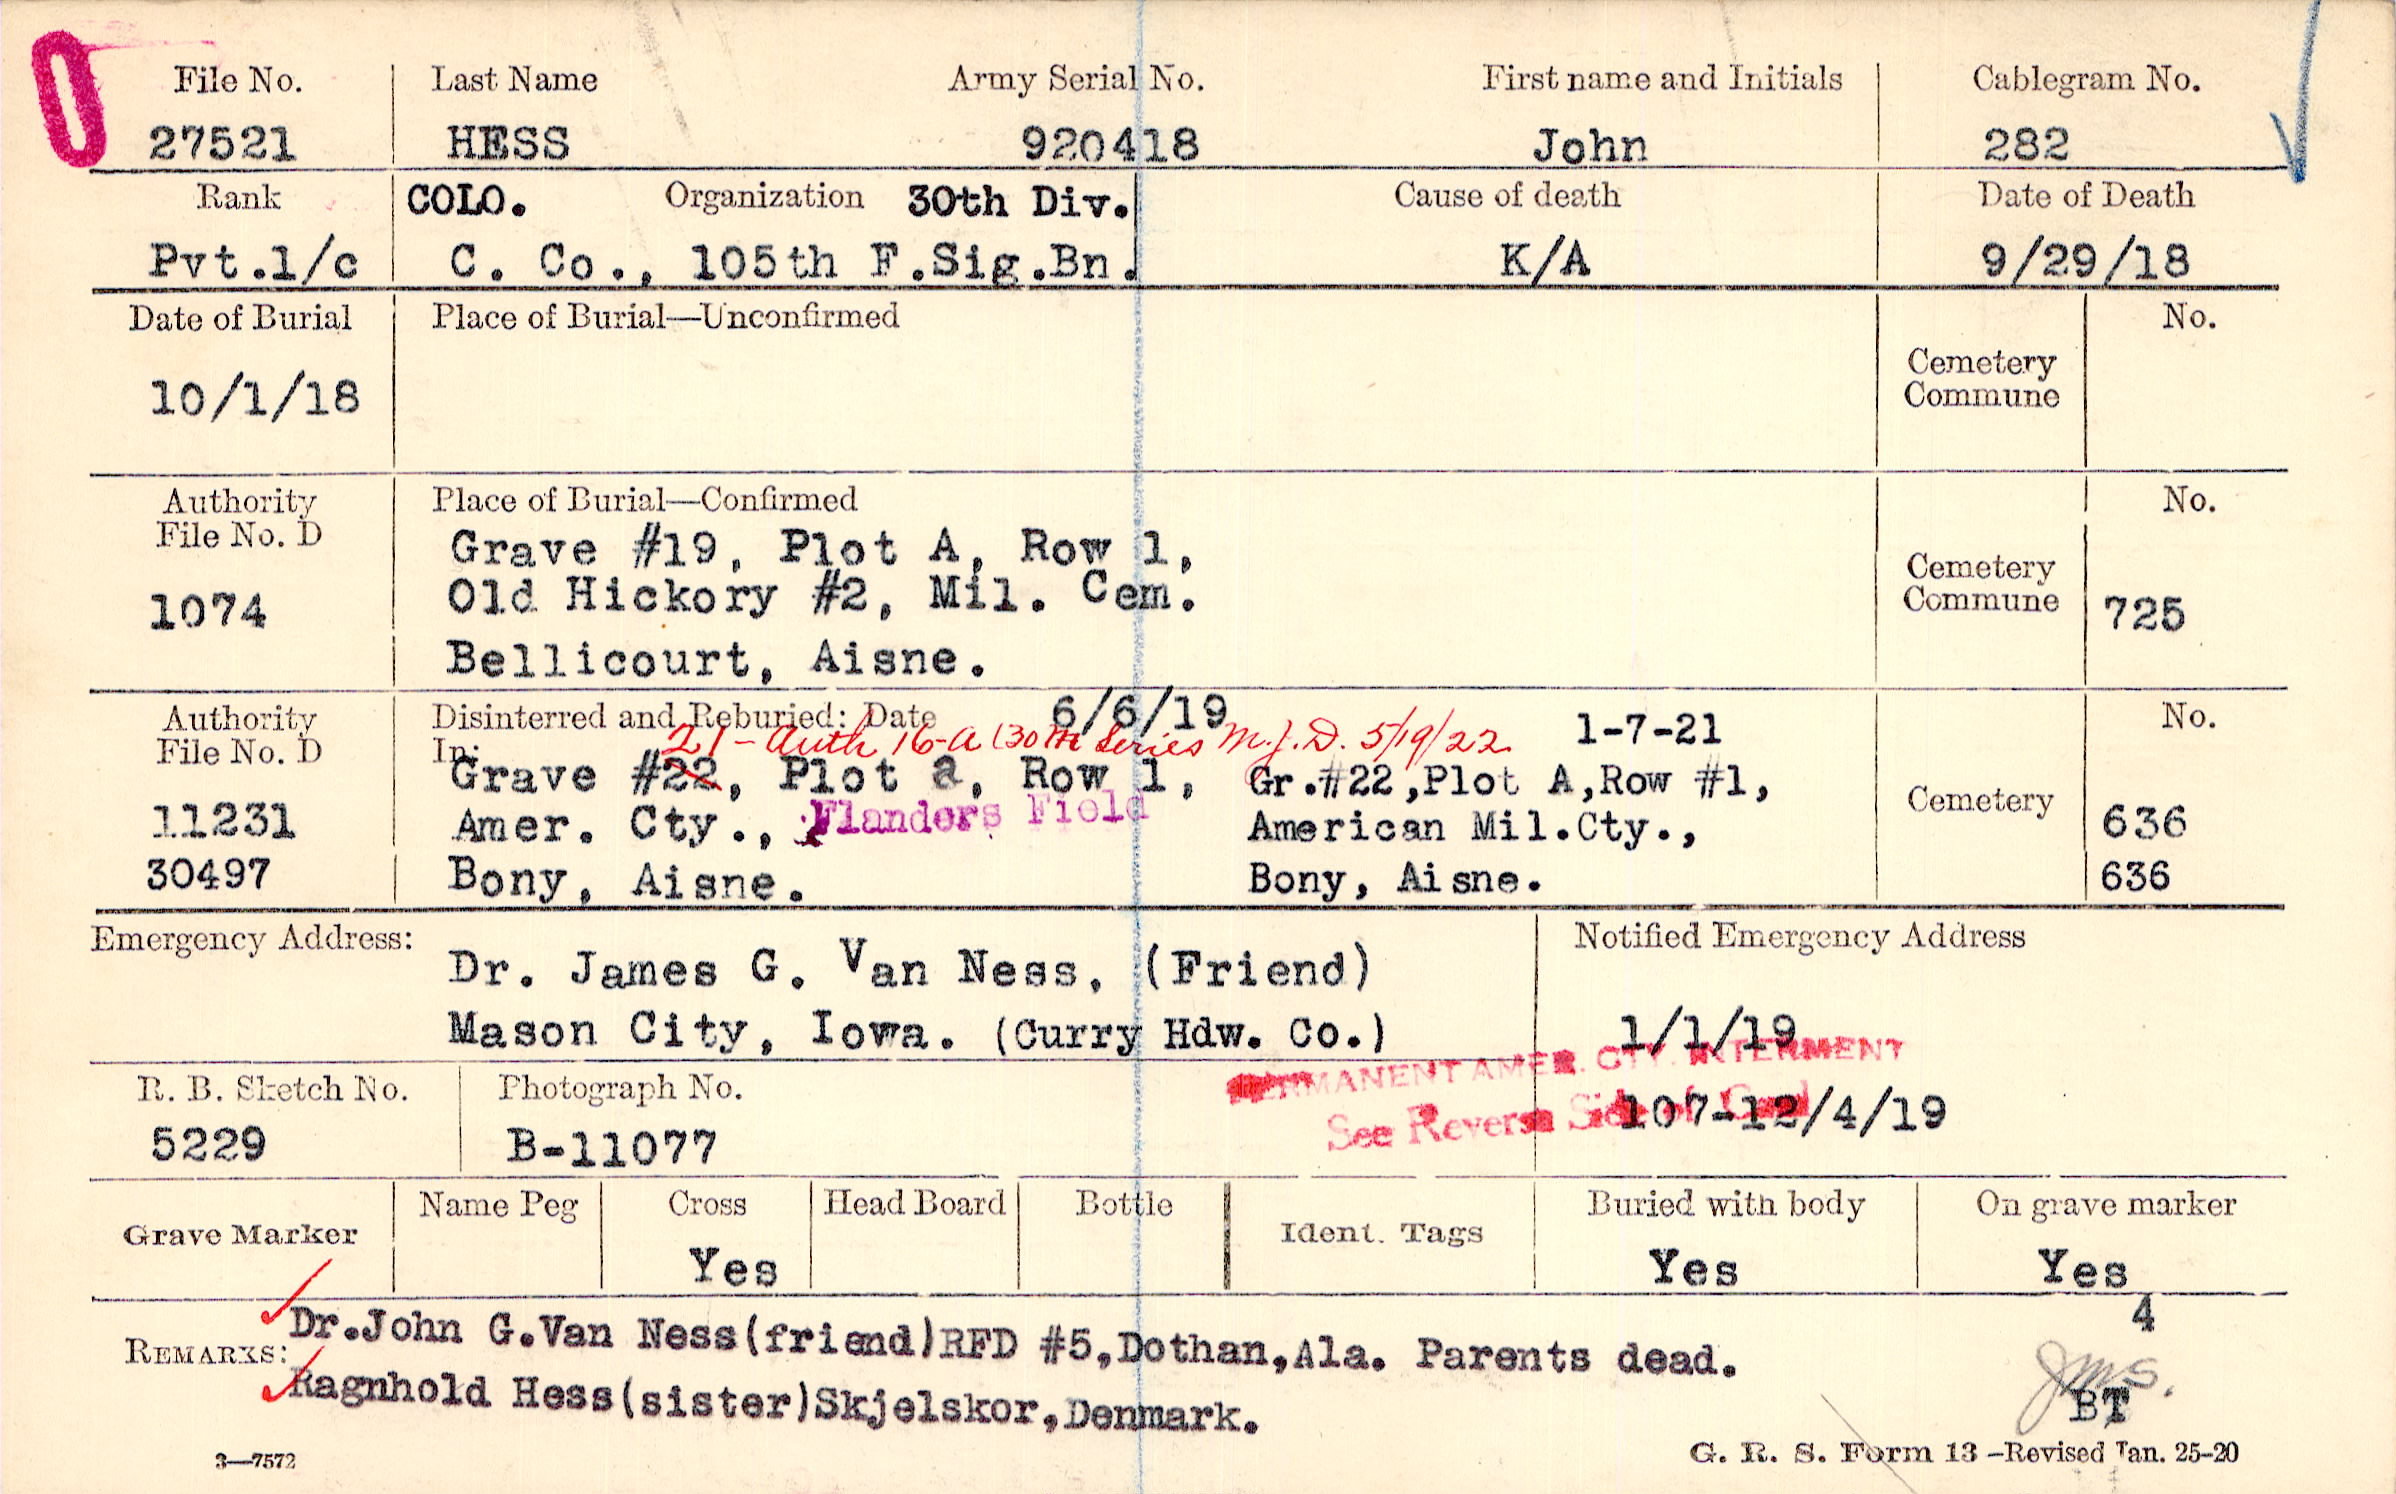 File No. Last Name Army Serial No. First name and Initials Cablegram No.
27521 HESS 920418 John 282
Rank COLO. Organization 30th Div. Cause of death Date of Death
Pvt.1/c C. Co., 105th F.Sig.Bn. K/A 9/29/18
Date of Burial Place of Burial—Unconfirmed No.
10/1/18 Cemetery
Commune
Authority Place of Burial—Confirmed No.
File No. D Grave #19, Plot A, Row 1,
1074 Old Hickory #2, Mil. Cem. Cemetery
Commune 725
Bellicourt, Aisne.
Authority Disinterred and Reburied: Date 6/6/19 1-7-21 No.
File No. D In: 21 - Auth 16-A (30th Series M.J.D. 5/19/22
Grave #22, Plot a, Row 1, Gr.#22,Plot A,Row #1,
11231 Amer. Cty., Flanders Field American Mil.Cty., Cemetery 636
30497 Bony, Aisne. Bony, Aisne. 636
Emergency Address: Notified Emergency Address
Dr. James G. Van Ness, (Friend)
Mason City, Iowa. (Curry Hdw. Co.) 1/1/19
PERMANENT AMER. CTY. INTERMENT
R. B. Sketch No. Photograph No. See Reverse Side of Card 107-12/4/19
5229 B-11077
Grave Marker Name Peg Cross Head Board Bottle Ident. Tags Buried with body On grave marker
Yes Yes Yes
4
REMARKS: Dr.John G.Van Ness(friend)RFD #5,Dothan,Ala. Parents dead.
Ragnhold Hess(sister)Skjelskor,Denmark.
JMS.
BT
3—7572 G. R. S. Form 13 –Revised Jan. 25-20